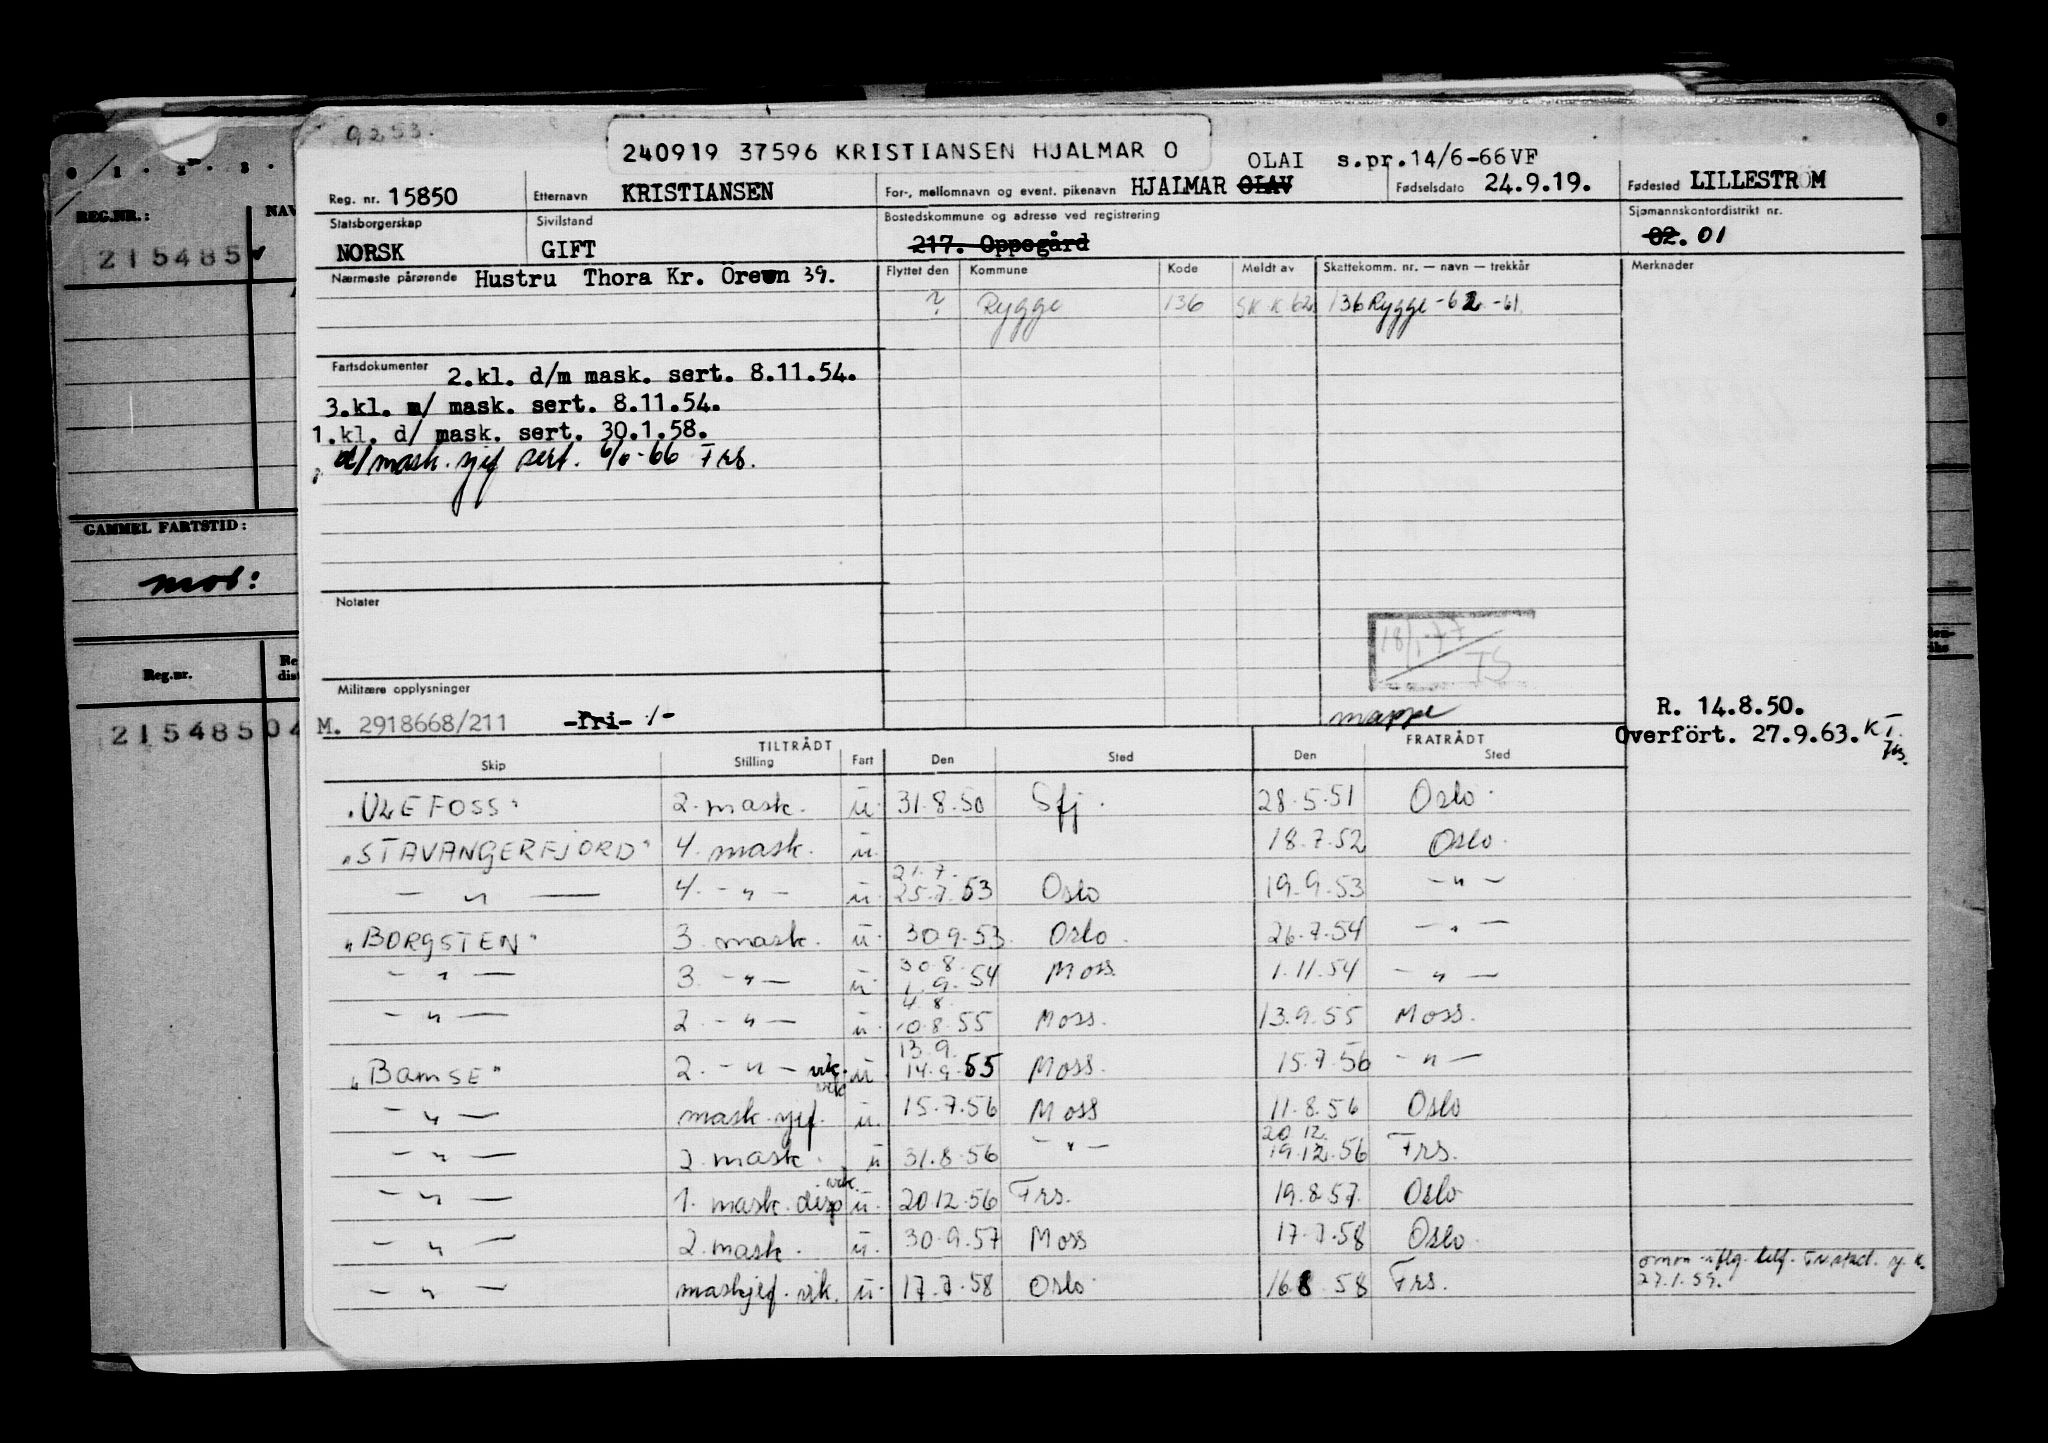 9253.
240919 37596 KRISTIANSEN HJALMAR O
OLAI s.pr.14/6-66VF
Reg. nr. 15850 Etternavn KRISTIANSEN For-, mellomnavn og event. pikenavn HJALMAR OLAV Fødselsdato 24.9.19. Fødested LILLESTRØM
Statsborgerskap NORSK Sivilstand GIFT Bostedskommune og adresse ved registrering 217. Oppegård Sjømannskontordistrikt nr. 02. 01
Nærmeste pårørende Hustru Thora Kr. 39.
Flyttet den Kommune Kode Meldt av Skattekomm. nr. — navn — trekkår Merknader
? Rygge 136 SK K 62. 136 Rygge -62 -61.
Fartsdokumenter 2.kl. d/m mask. sert. 8.11.54.
3.kl. m/ mask. sert. 8.11.54.
1.kl. d/ mask. sert. 30.1.58.
d/mask. sjef sert. 6/6-66 Frs.
Notater
18/1-77
TS
Militære opplysninger
M. 2918668/211 -fri- -/-
mappe
R. 14.8.50.
Overført. 27.9.63. KT.
Frs.
TILTRÅDT FRATRÅDT
Skip Stilling Fart Den Sted Den Sted
"ULEFOSS" 2. mask. u. 31.8.50 Sfj. 28.5.51 Oslo.
"STAVANGERFJORD" 4. mask. u. 18.7.52 Oslo.
21.7.
— " — 4. - " - u. 25.7.53 Oslo 19.9.53 - " -
"BORGSTEN" 3. mask. u. 30.9.53. Oslo. 26.7.54 - " -
30.8.
- " - 3. - " - u. 1.9.54 Moss. 1.11.54 - " -
4.8.
- " - 2. - " - u. 10.8.55 Moss. 13.9.55 Moss.
13.9.
"BAMSE" 2. - " - vik. u. 14.9.55 Moss. 15.7.56 - " -
vik
- " - mask. sjef. u. 15.7.56 Moss 11.8.56 Oslo
20.12.
- " - 2. mask. u 31.8.56 - " - 19.12.56 Frs.
vik.
- " - 1. mask. disp u. 20.12.56 Frs. 19.8.57. Oslo
- " - 2. mask. u. 30.9.57 Moss 17.7.58 Oslo.
- " - maskjef. vik. u. 17.7.58 Oslo. 16.8.58 Frs.
27.1.59.
0 1 . 2 . 3 .
REG.NR.: NAV
215485
GAMMEL FARTSTID:
mob:
Reg.nr. Re
dist
21548504